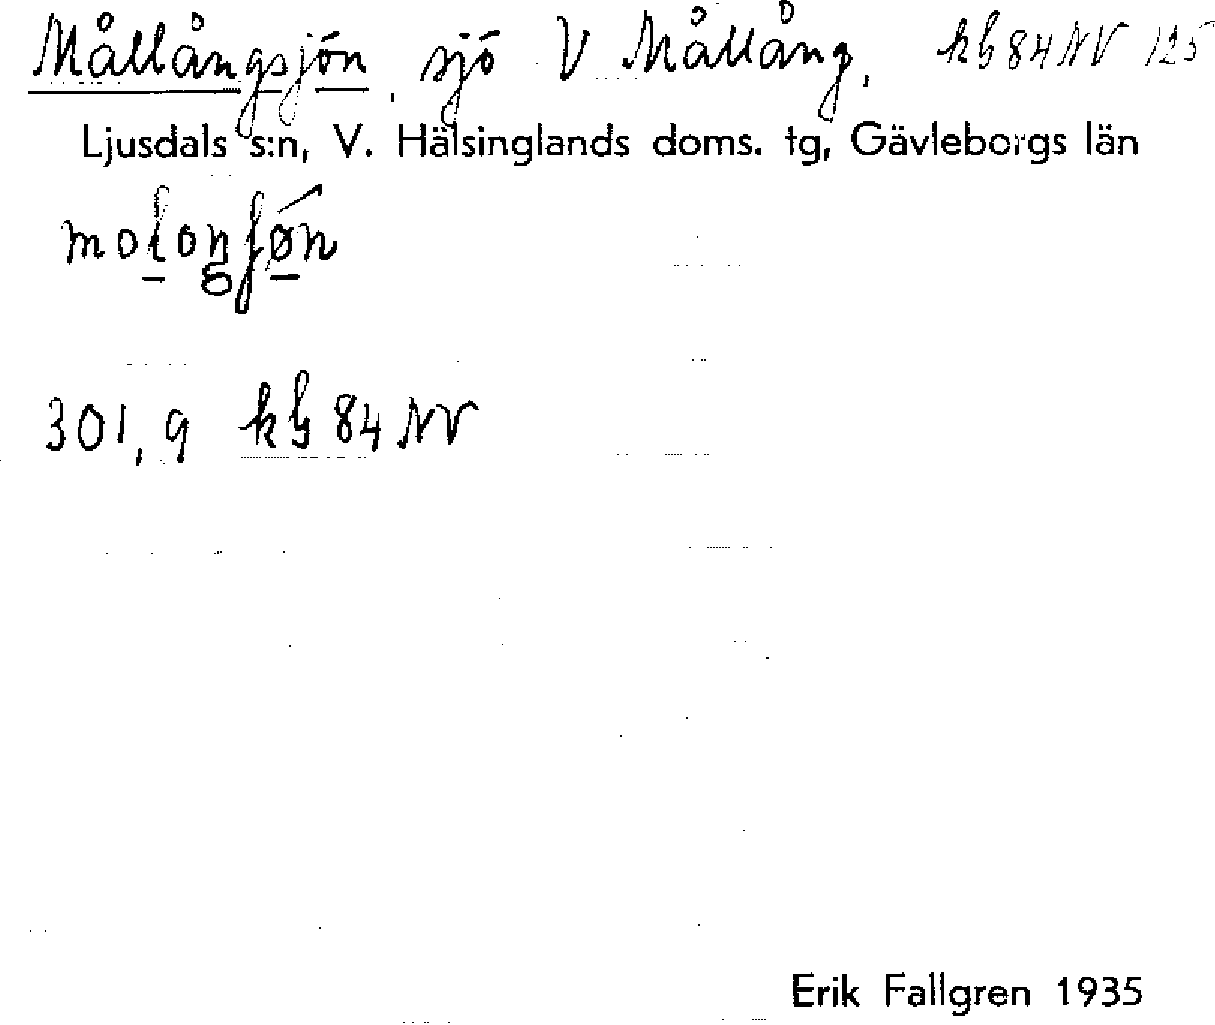 Mållångsjön, sjö V Mållång, kb 84 NV 125
Ljusdals s:n, V. Hälsinglands doms. tg, Gävleborgs län
301,9 kb 84 NV
Erik Fallgren 1935